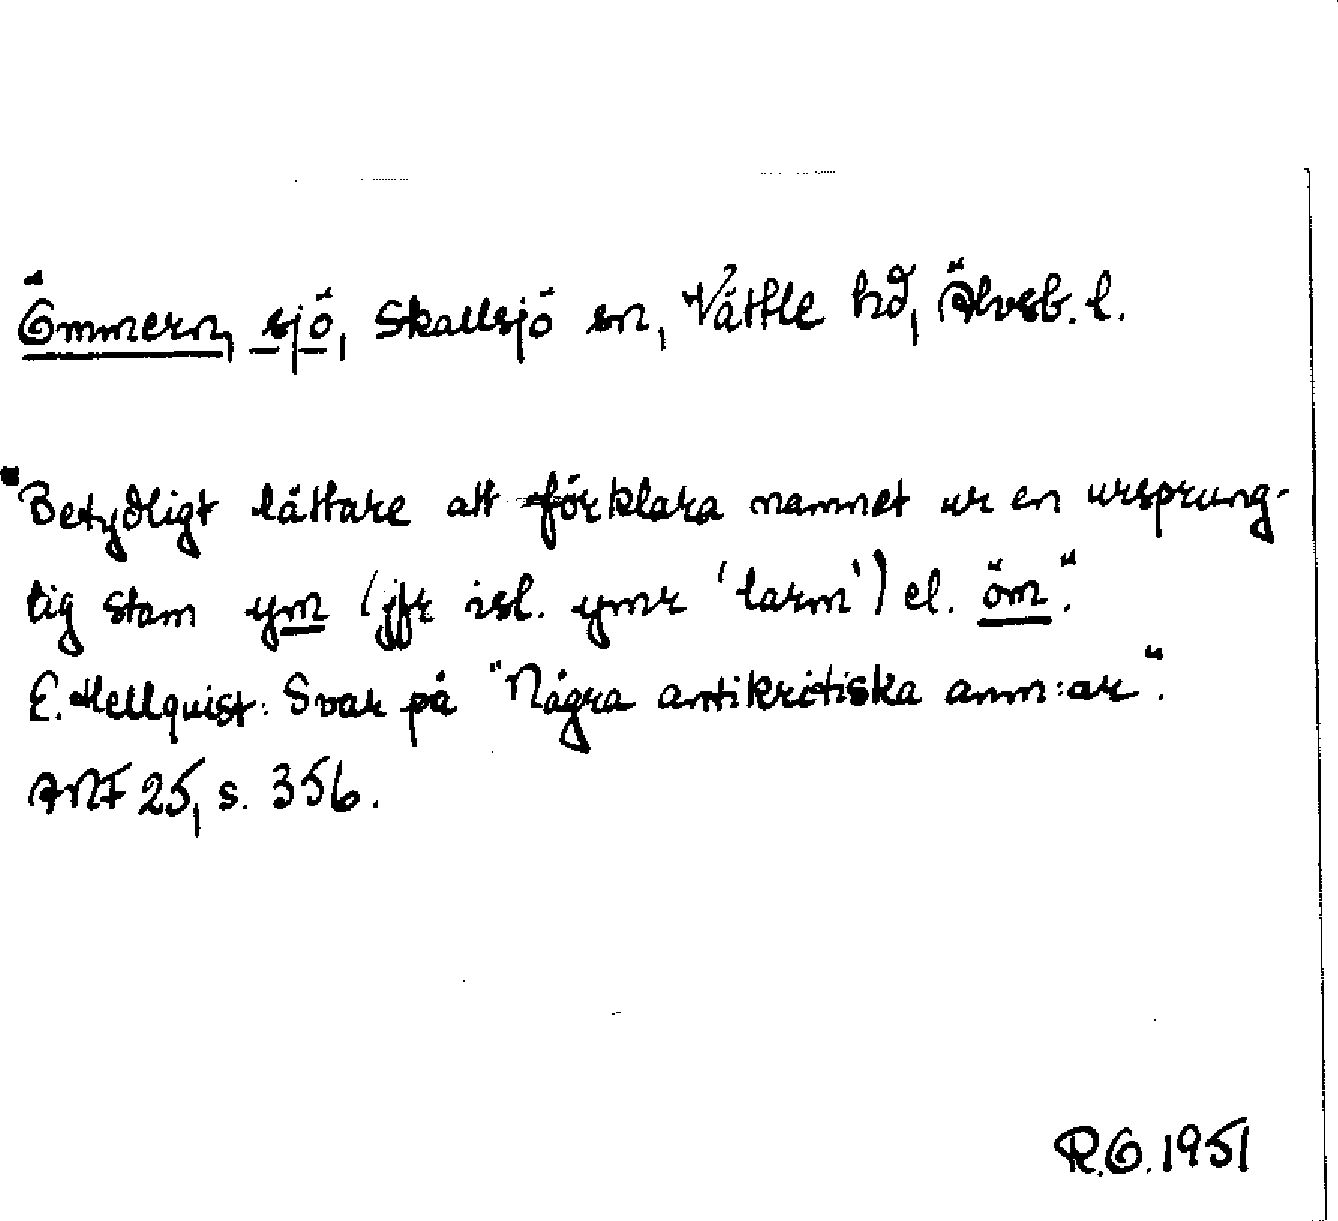 Ömmern, sjö, Skallsjö sn, Vättle hd, Älvsb. l.
"Betydligt lättare att förklara namnet ur en ursprung-
lig stam ym (jfr isl. ymr 'larm') el. öm".
E. Hellquist: Svar på "Några antikritiska anm:ar".
ANF 25, s. 356.
R.O. 1951